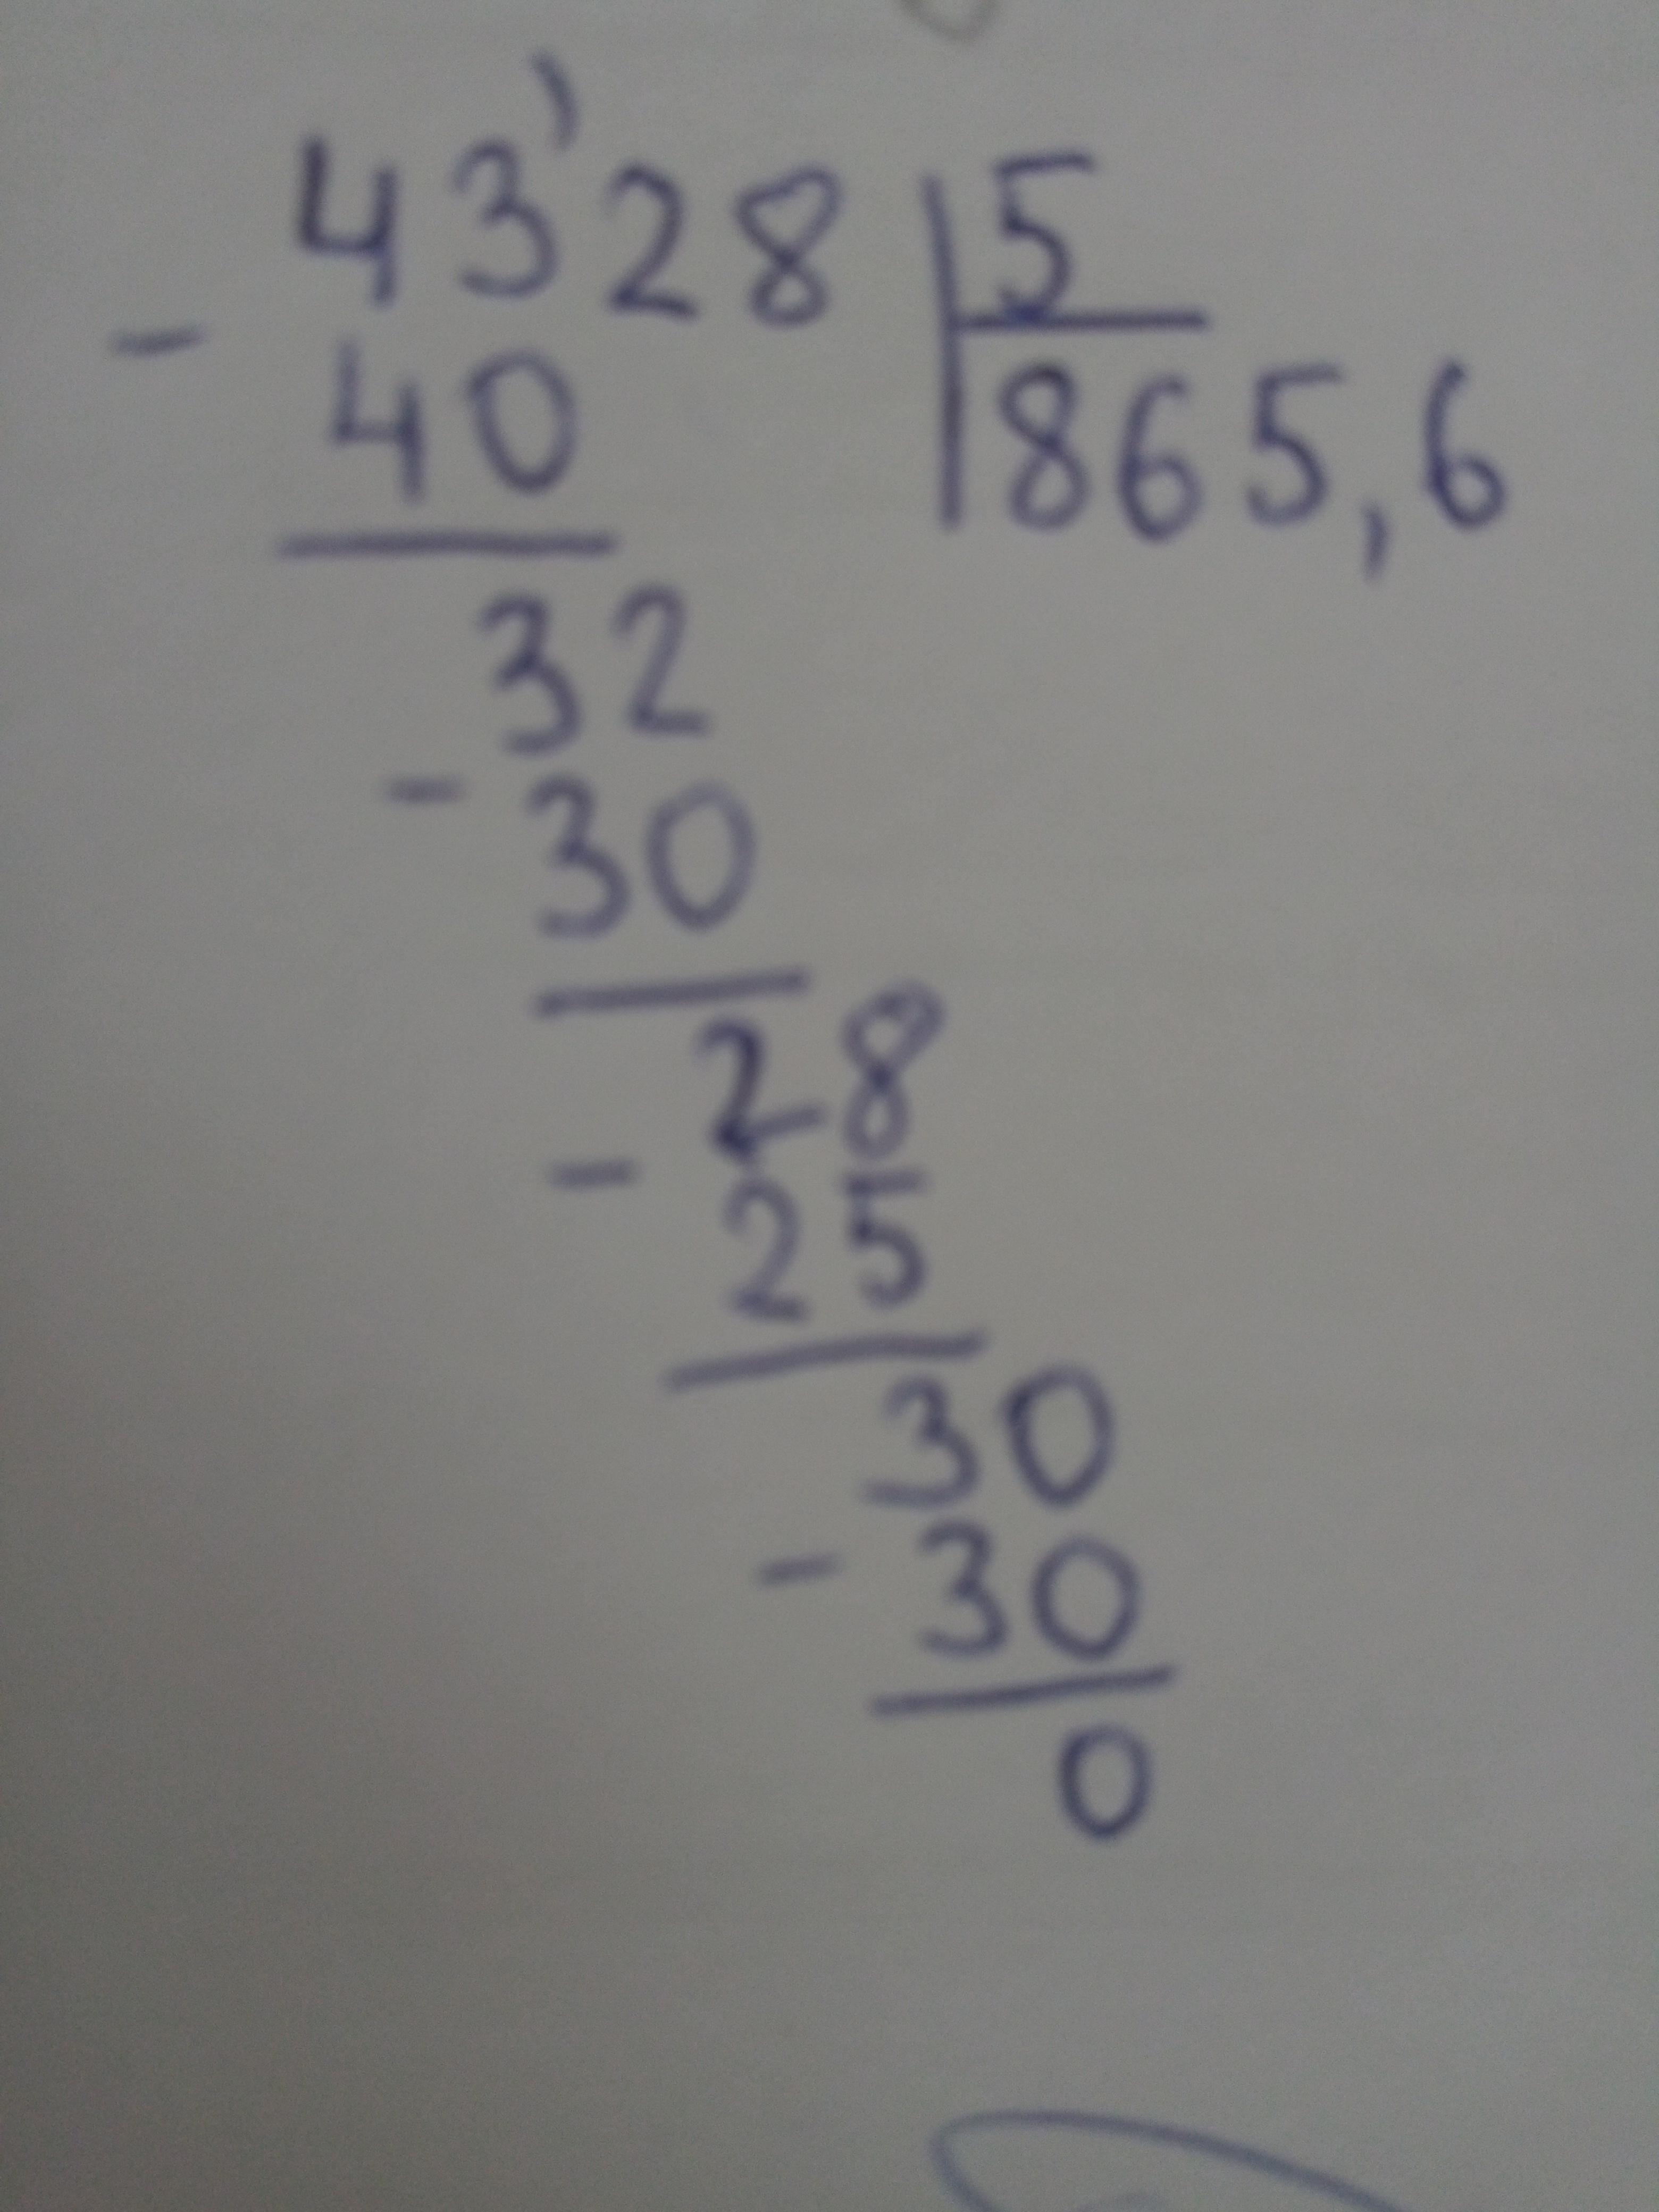 4328 5
- 40 865,6
32
- 30
28
- 25
30
- 30
0